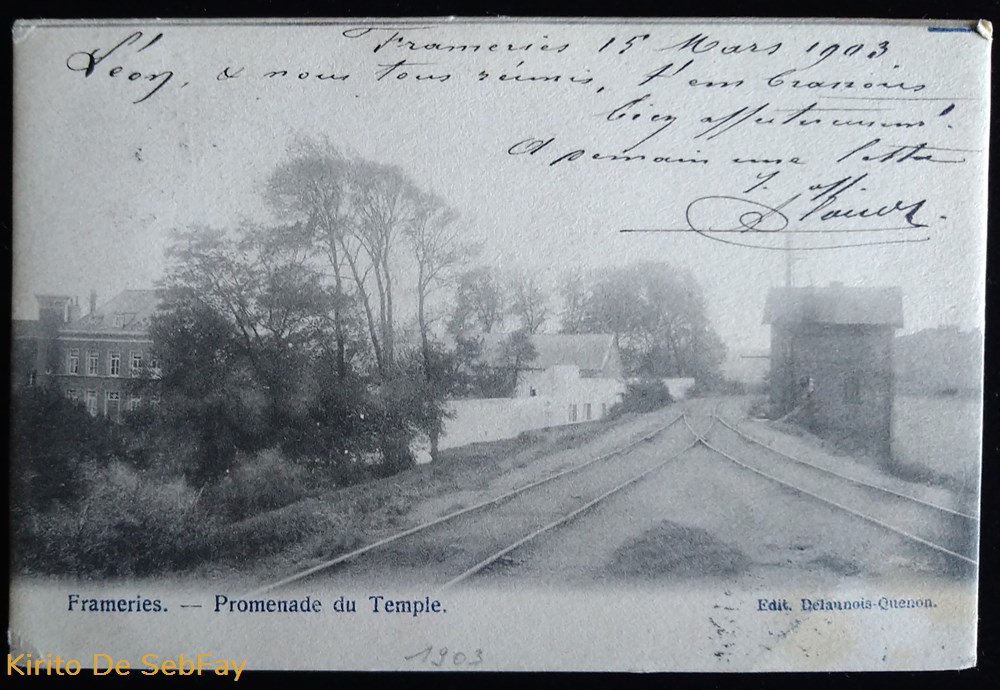 Frameries 15 Mars 1903.
Léon, & nous tous réunis, t'embrassons
bien affectueusement.
A demain une lettre
Frameries. — Promenade du Temple.
Edit. Delaunois-Quenon.
1903
Kirito De SebFay